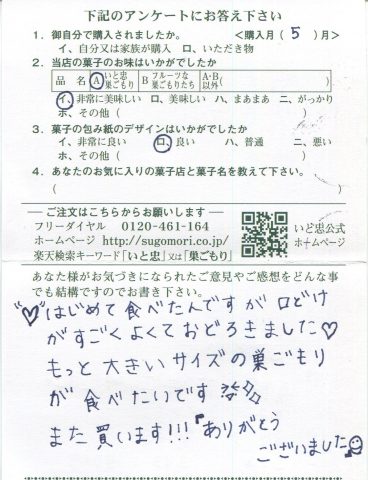 下記のアンケートにお答え下さい
1. 御自分で購入されましたか。 <購入月( 5 )月>
イ、自分又は家族が購入 ロ、いただき物
2. 当店の菓子のお味はいかがでしたか
品 名 A いと忠巣ごもり B フルーツな巣ごもりたち A・B以外( )
イ、非常に美味しい ロ、美味しい ハ、まあまあ ニ、がっかり
ホ、その他( )
3. 菓子の包み紙のデザインはいかがでしたか
イ、非常に良い ロ、良い ハ、普通 ニ、悪い
ホ、その他( )
4. あなたのお気に入りの菓子店と菓子名を教えて下さい。
( )
ご注文はこちらからお願いします
フリーダイヤル 0120-461-164
ホームページ http://sugomori.co.jp/
楽天検索キーワード「いと忠」又は「巣ごもり」
いと忠公式
ホームページ
あなた様がお気づきになられたご意見やご感想をどんな事
でも結構ですのでお書き下さい。
"♡"はじめて食べたんですが口どけ
がすごくよくておどろきました♡
もっと大きいサイズの巣ごもり
が食べたいです
また買います!!!『ありがとう
ございました